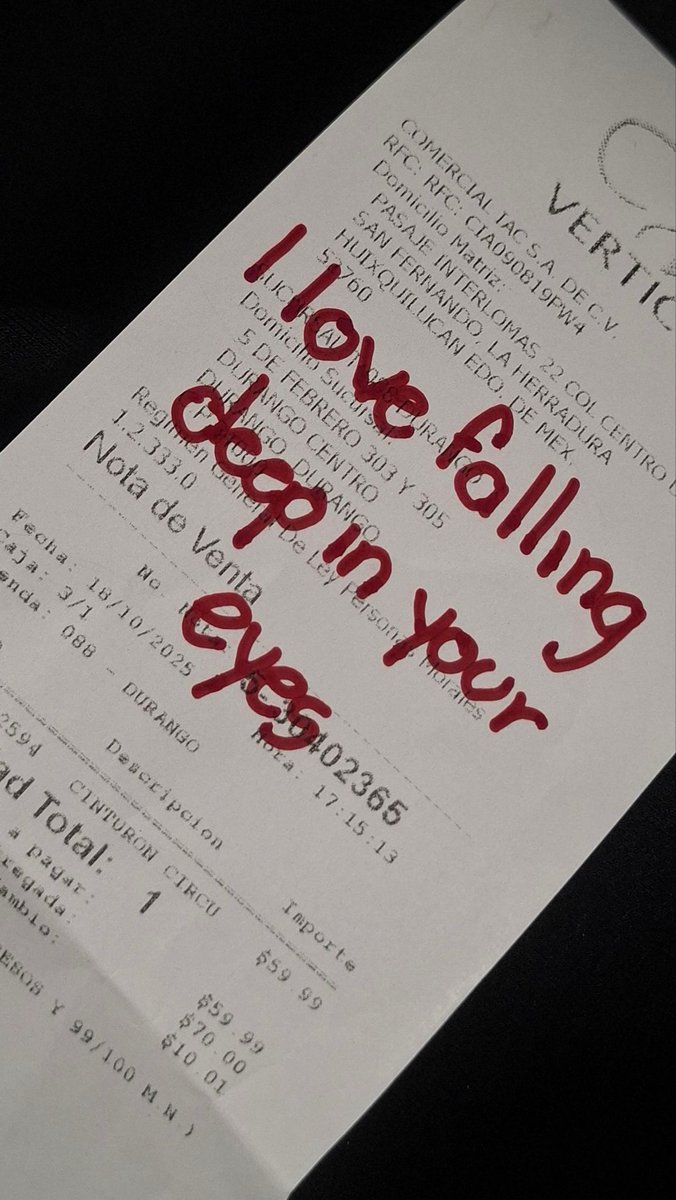 VERTIC
COMERCIAL IAC S.A. DE C.V.
RFC: RFC: CIA090819PW4
Domicilio Matriz:
PASAJE INTERLOMAS 22 COL CENTRO
SAN FERNANDO, LA HERRADURA
HUIXQUILUCAN EDO. DE MEX.
52760
I love falling
deep in your
eyes
Domicilio Sucursal
5 DE FEBRERO 303 Y 305
DURANGO CENTRO
DURANGO, DURANGO
Regimen General De Ley Personas Morales
1.2.333.0
Nota de Venta
Fecha: 18/10/2025
Hora: 17:15:13
Caja: 3/1
088 - DURANGO
Descripcion Importe
2594 CINTURON CIRCU $59.99
ad Total: 1
a pagar: $59.99
regada: $70.00
ambio: $10.01
ESOS Y 99/100 M.N )